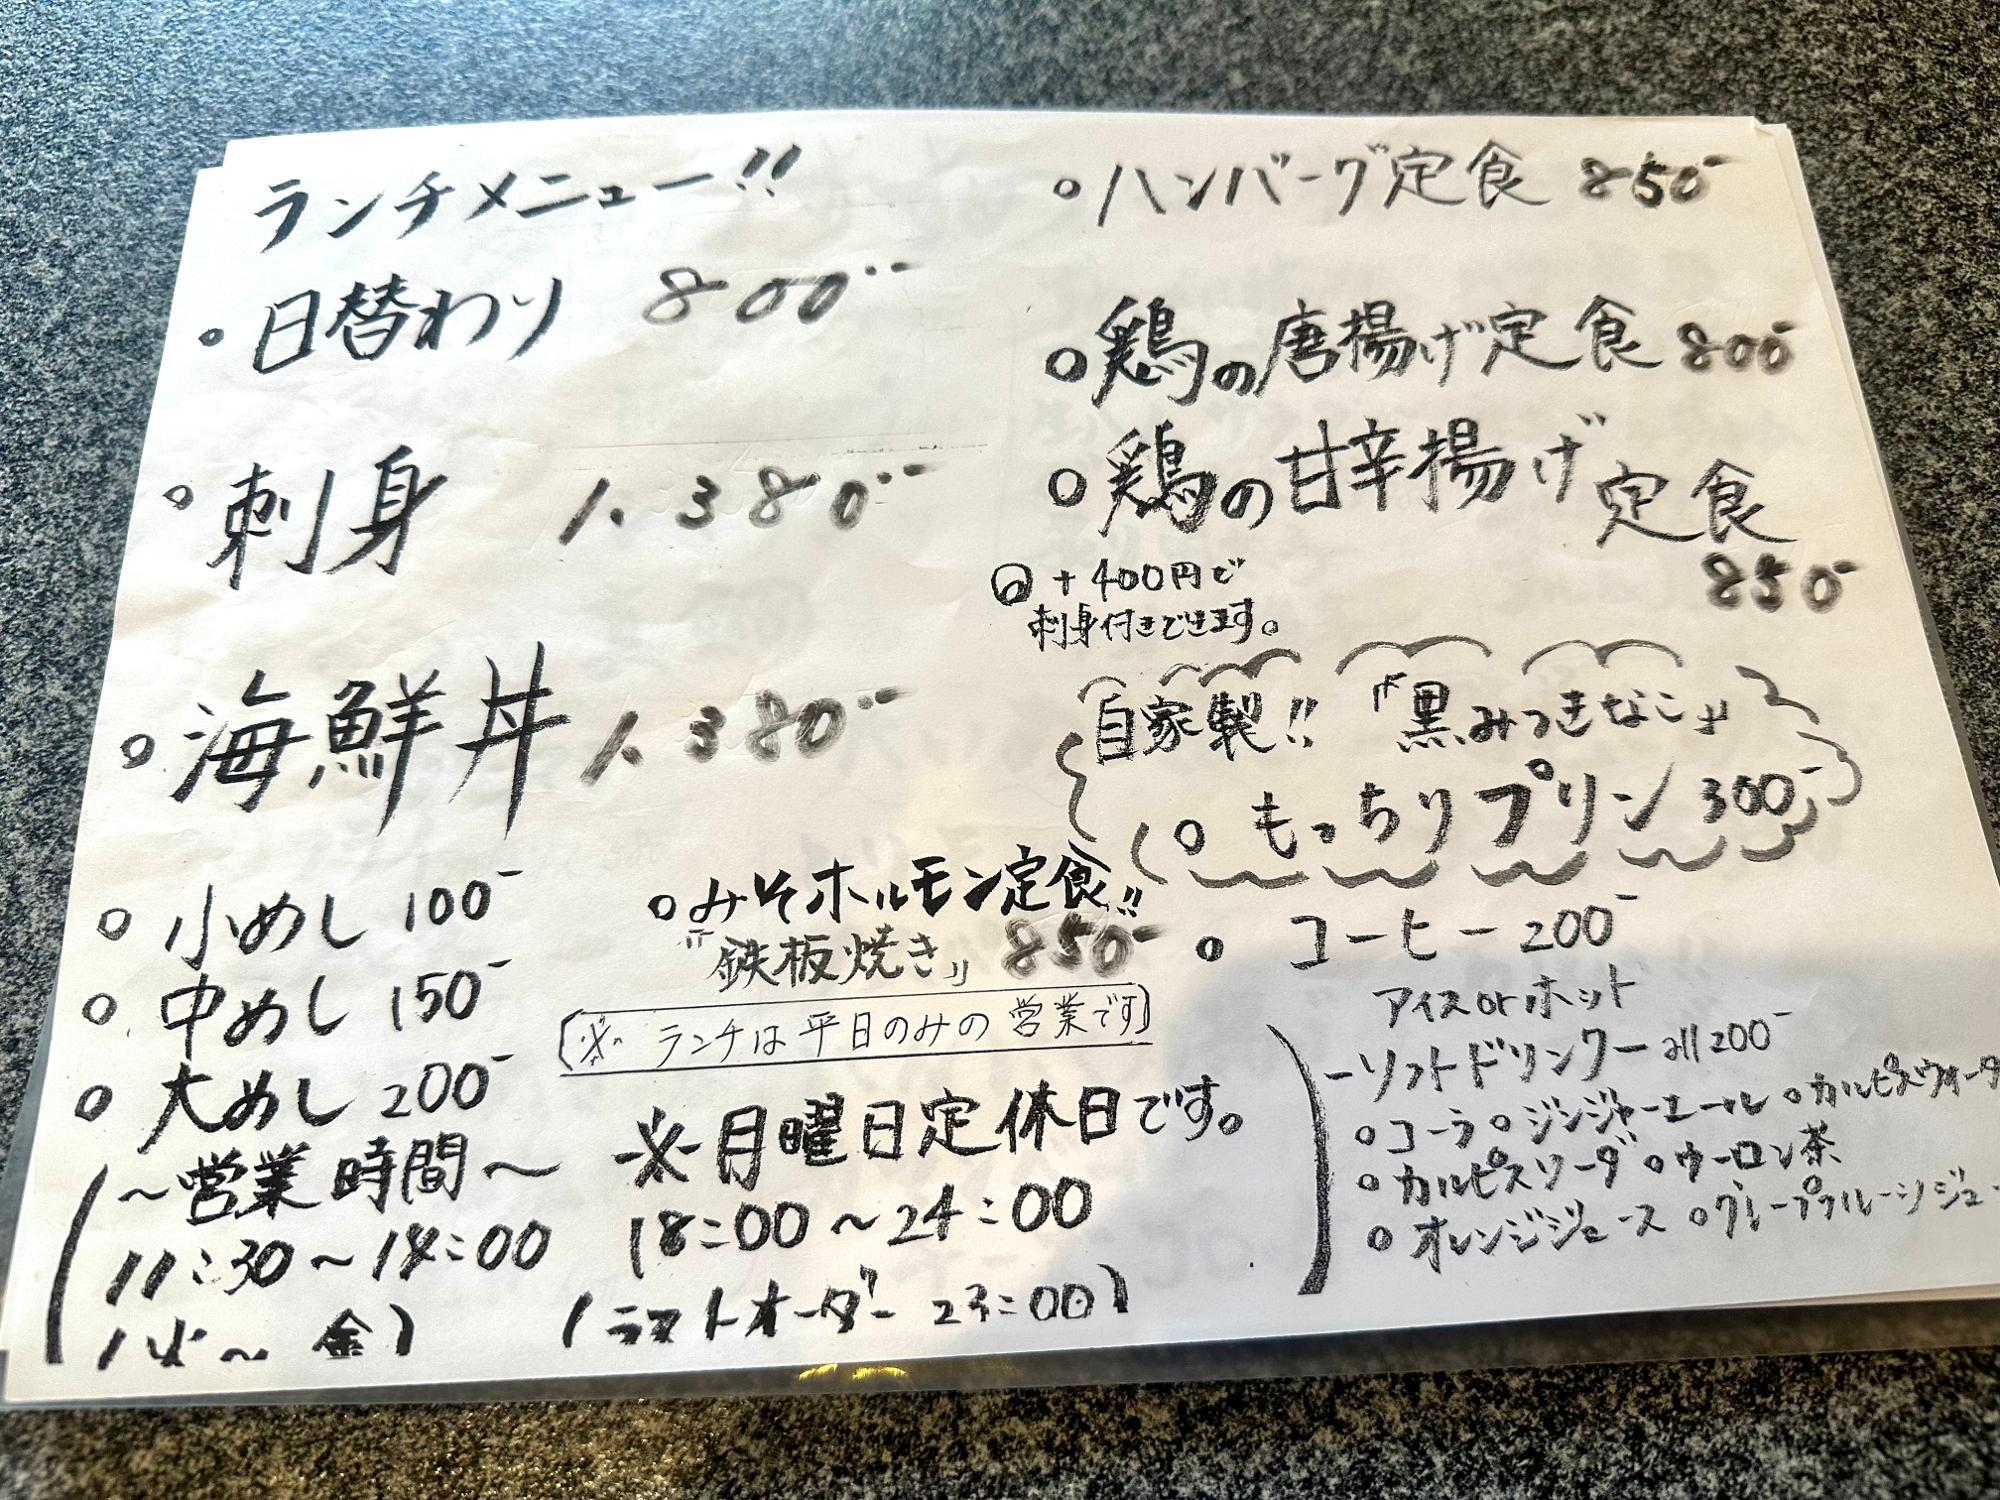 ランチメニュー!!
○日替わり 800
○刺身 1.380
○海鮮丼 1.380
○小めし 100-
○中めし 150-
○大めし 200-
〜営業時間〜
11:30〜14:00
(火〜金)
○みそホルモン定食!!
『鉄板焼き』 850-
(※ ランチは平日のみの営業です)
※月曜日定休日です。
18:00〜24:00
(ラストオーダー 23:00)
○ハンバーグ定食 850-
○鶏の唐揚げ定食 800-
○鶏の甘辛揚げ定食
850-
◎+400円で
刺身付きできます。
自家製!! 『黒みつきなこ』
○もっちりプリン 300-
○コーヒー 200-
アイスorホット
ーソフトドリンクー all 200-
○コーラ ○ジンジャーエール ○カルピスウォータ
○カルピスソーダ ○ウーロン茶
○オレンジジュース ○グレープフルーツジュ